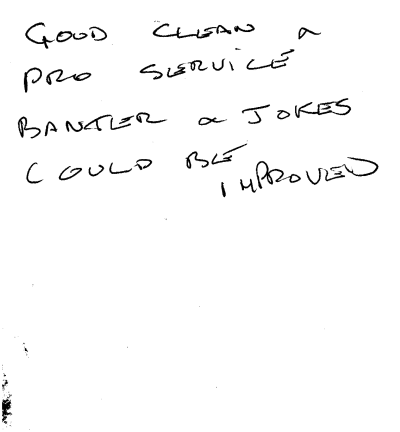 GOOD CLEAN &
PRO SERVICE
BANTER & JOKES
COULD BE
IMPROVED